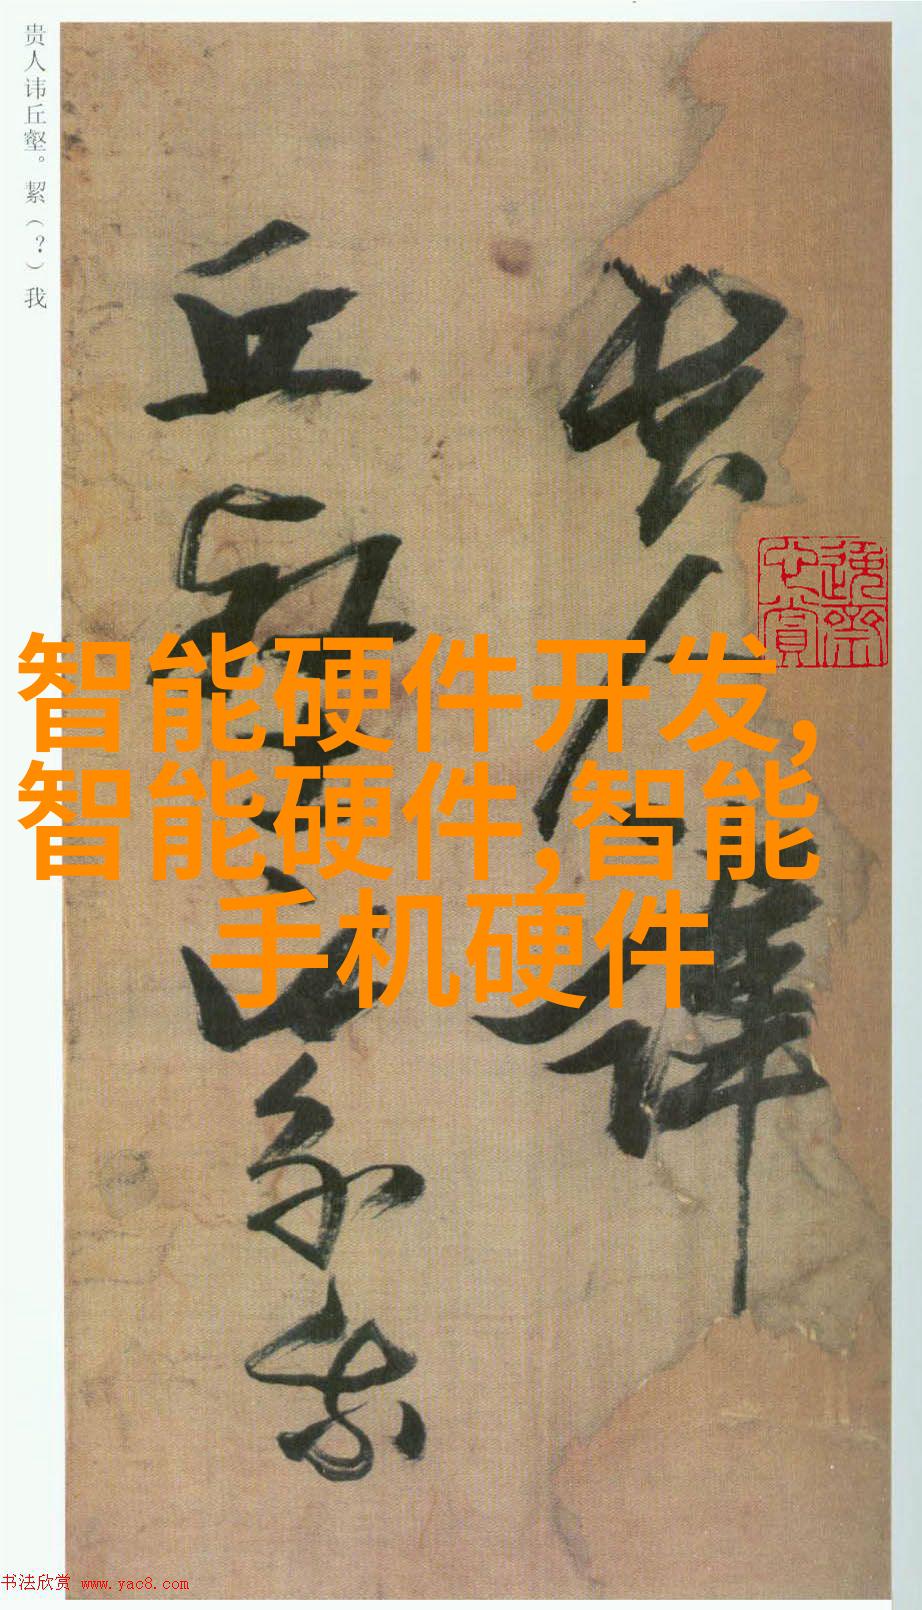 贵人讳丘壑。絜（？）我
贵人讳
丘壑絜我
智能硬件开发,
智能硬件,智能
手机硬件
书法欣赏 www.yac8.com